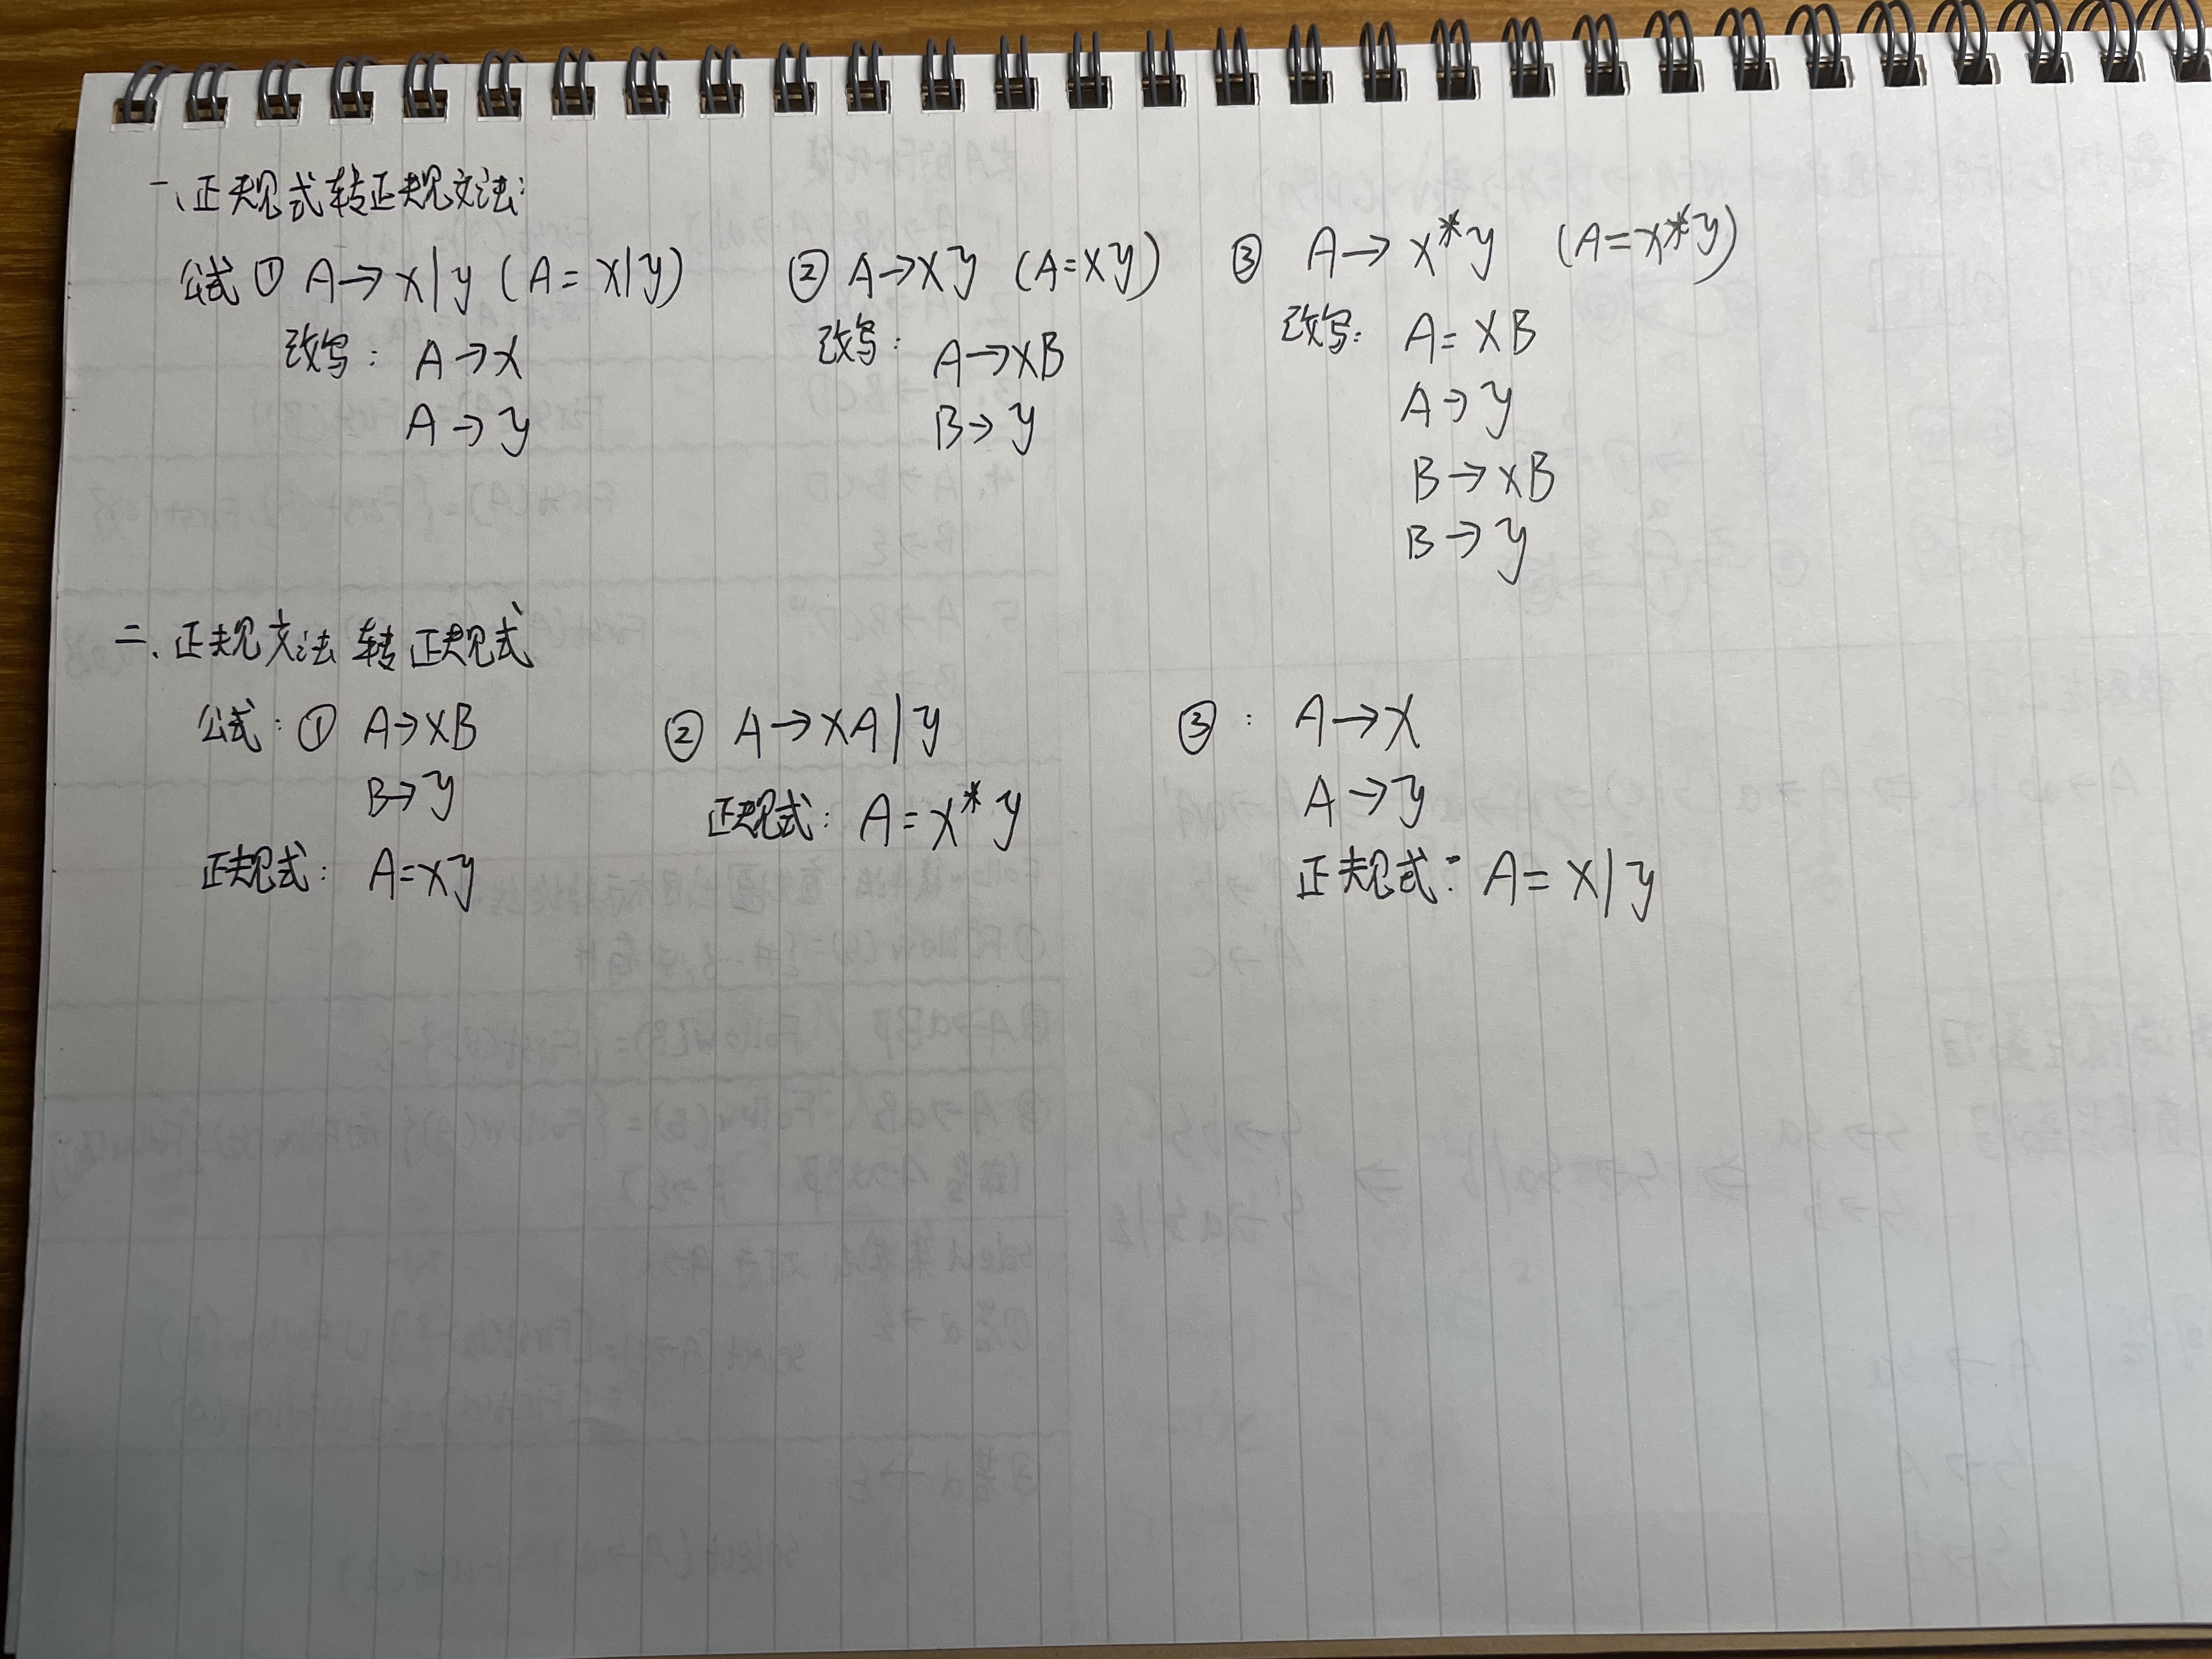 一、正规式转正规文法:
公式 ① A→x|y (A=x|y)
改写: A→x
A→y
② A→xy (A=xy)
改写: A→xB
B→y
③ A→x*y (A=x*y)
改写: A=xB
A→y
B→xB
B→y
二、正规文法转正规式
公式: ① A→xB
B→y
正规式: A=xy
② A→xA|y
正规式: A=x*y
③: A→x
A→y
正规式: A=x|y